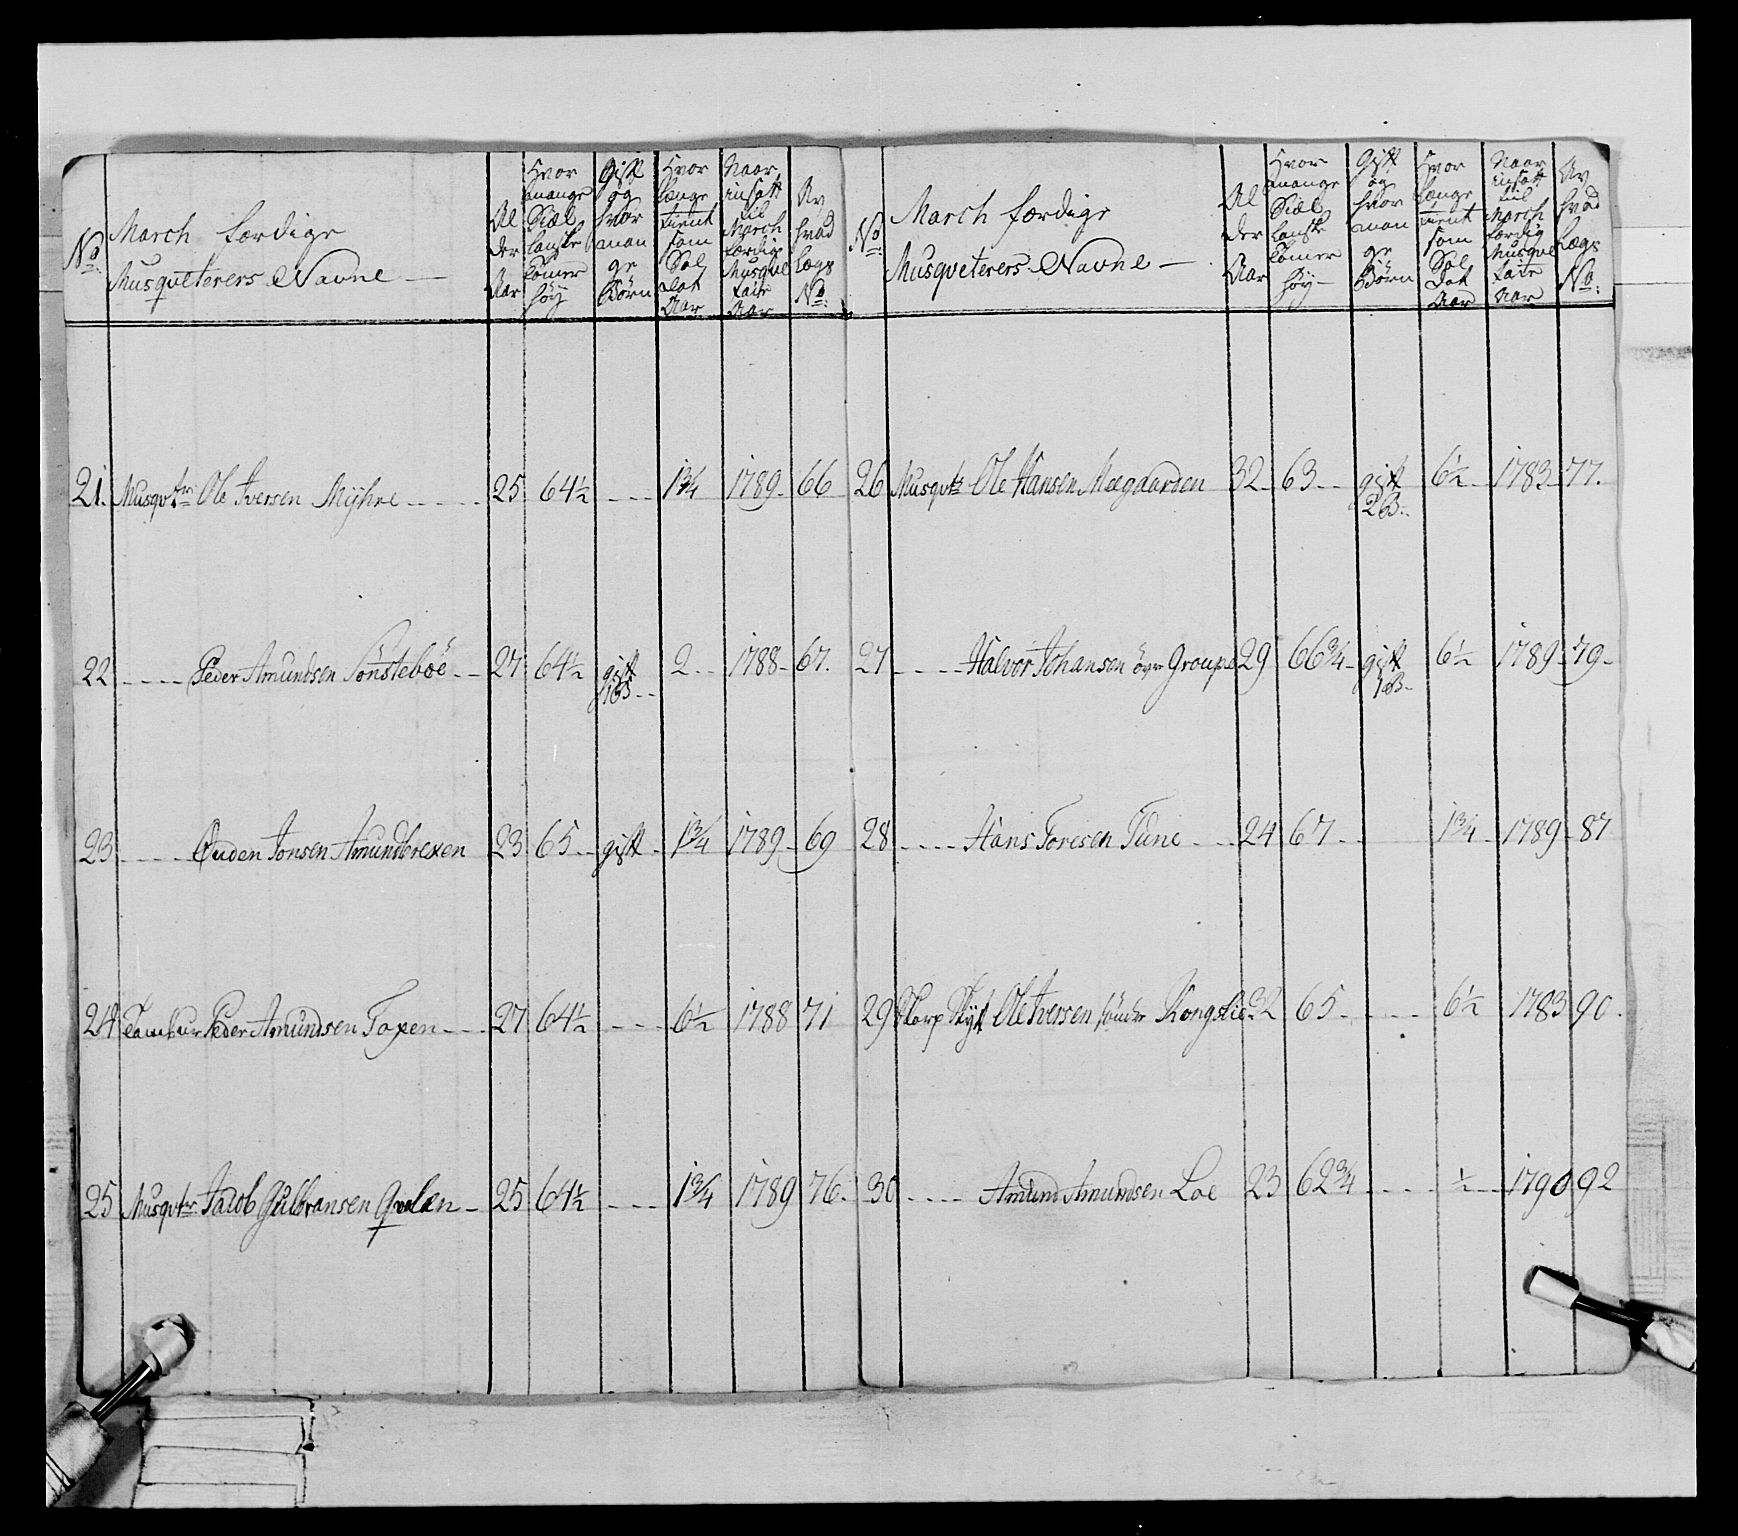 No: March færdige Musqveterers Navne — Al der Aar Hvor mange Siæl landske Tomer høÿ Gift og hvor man ge Børn Hvor længe tient som Sol dat Aar Naar insatt til March færdige Musque taire Aar Av hvad Lægs No:
21. Musqvtr Ole Iversen Mÿhre 25 64½ 1¾ 1789 66
22 Peder Amundsen Sönsteböe 27 64½ gift 1B 2 1788 67.
23 Ouden Jonsen Amundbrexen 23 65 gift 1¾ 1789 69
24 Tambur Peder Amundsen Foxen 27 64½ 6½ 1788 71
25 Musqvtr Jacob Gulbransen Qvalen 25 64½ 1¾ 1789 76.
No: March færdige Musqveterers Navne — Al der Aar Hvor mange Siæl lanske Tomer høÿ Gift og hvor man ge Börn Hvor længe tient som Sol dat Aar Naar insatt til March færdig Musque taire Aar Av hvad Lægs No:
26 Musqvtr Ole Hansen Moegaarden 32 63 gift 2B. 6½ 1783 77.
27 Halvor Johansen övr Groupe 29 66¾ gift 1B 6½ 1789 79
28 Hans Toresen Tune 24 67 1¾ 1789 87
29 Ole Iversen sönder Kongslie 32 65 6½ 1783 90.
30 Amund Amundsen Loe 23 62¾ ½ 1790 92